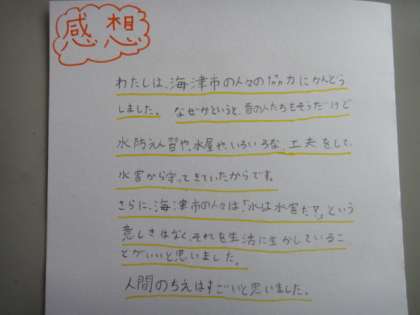 感想
わたしは、海津市の人々のど力にかんどう
しました。なぜかというと、昔の人たちもそうだけど
水防えん習や、水屋や、いろいろな、工夫をして、
水害から守ってきていたからです。
さらに、海津市の人々は、「水は水害だ」という
意しきはなく、それを生活に生かしているこ
とがいいと思いました。
人間のちえはすごいと思いました。